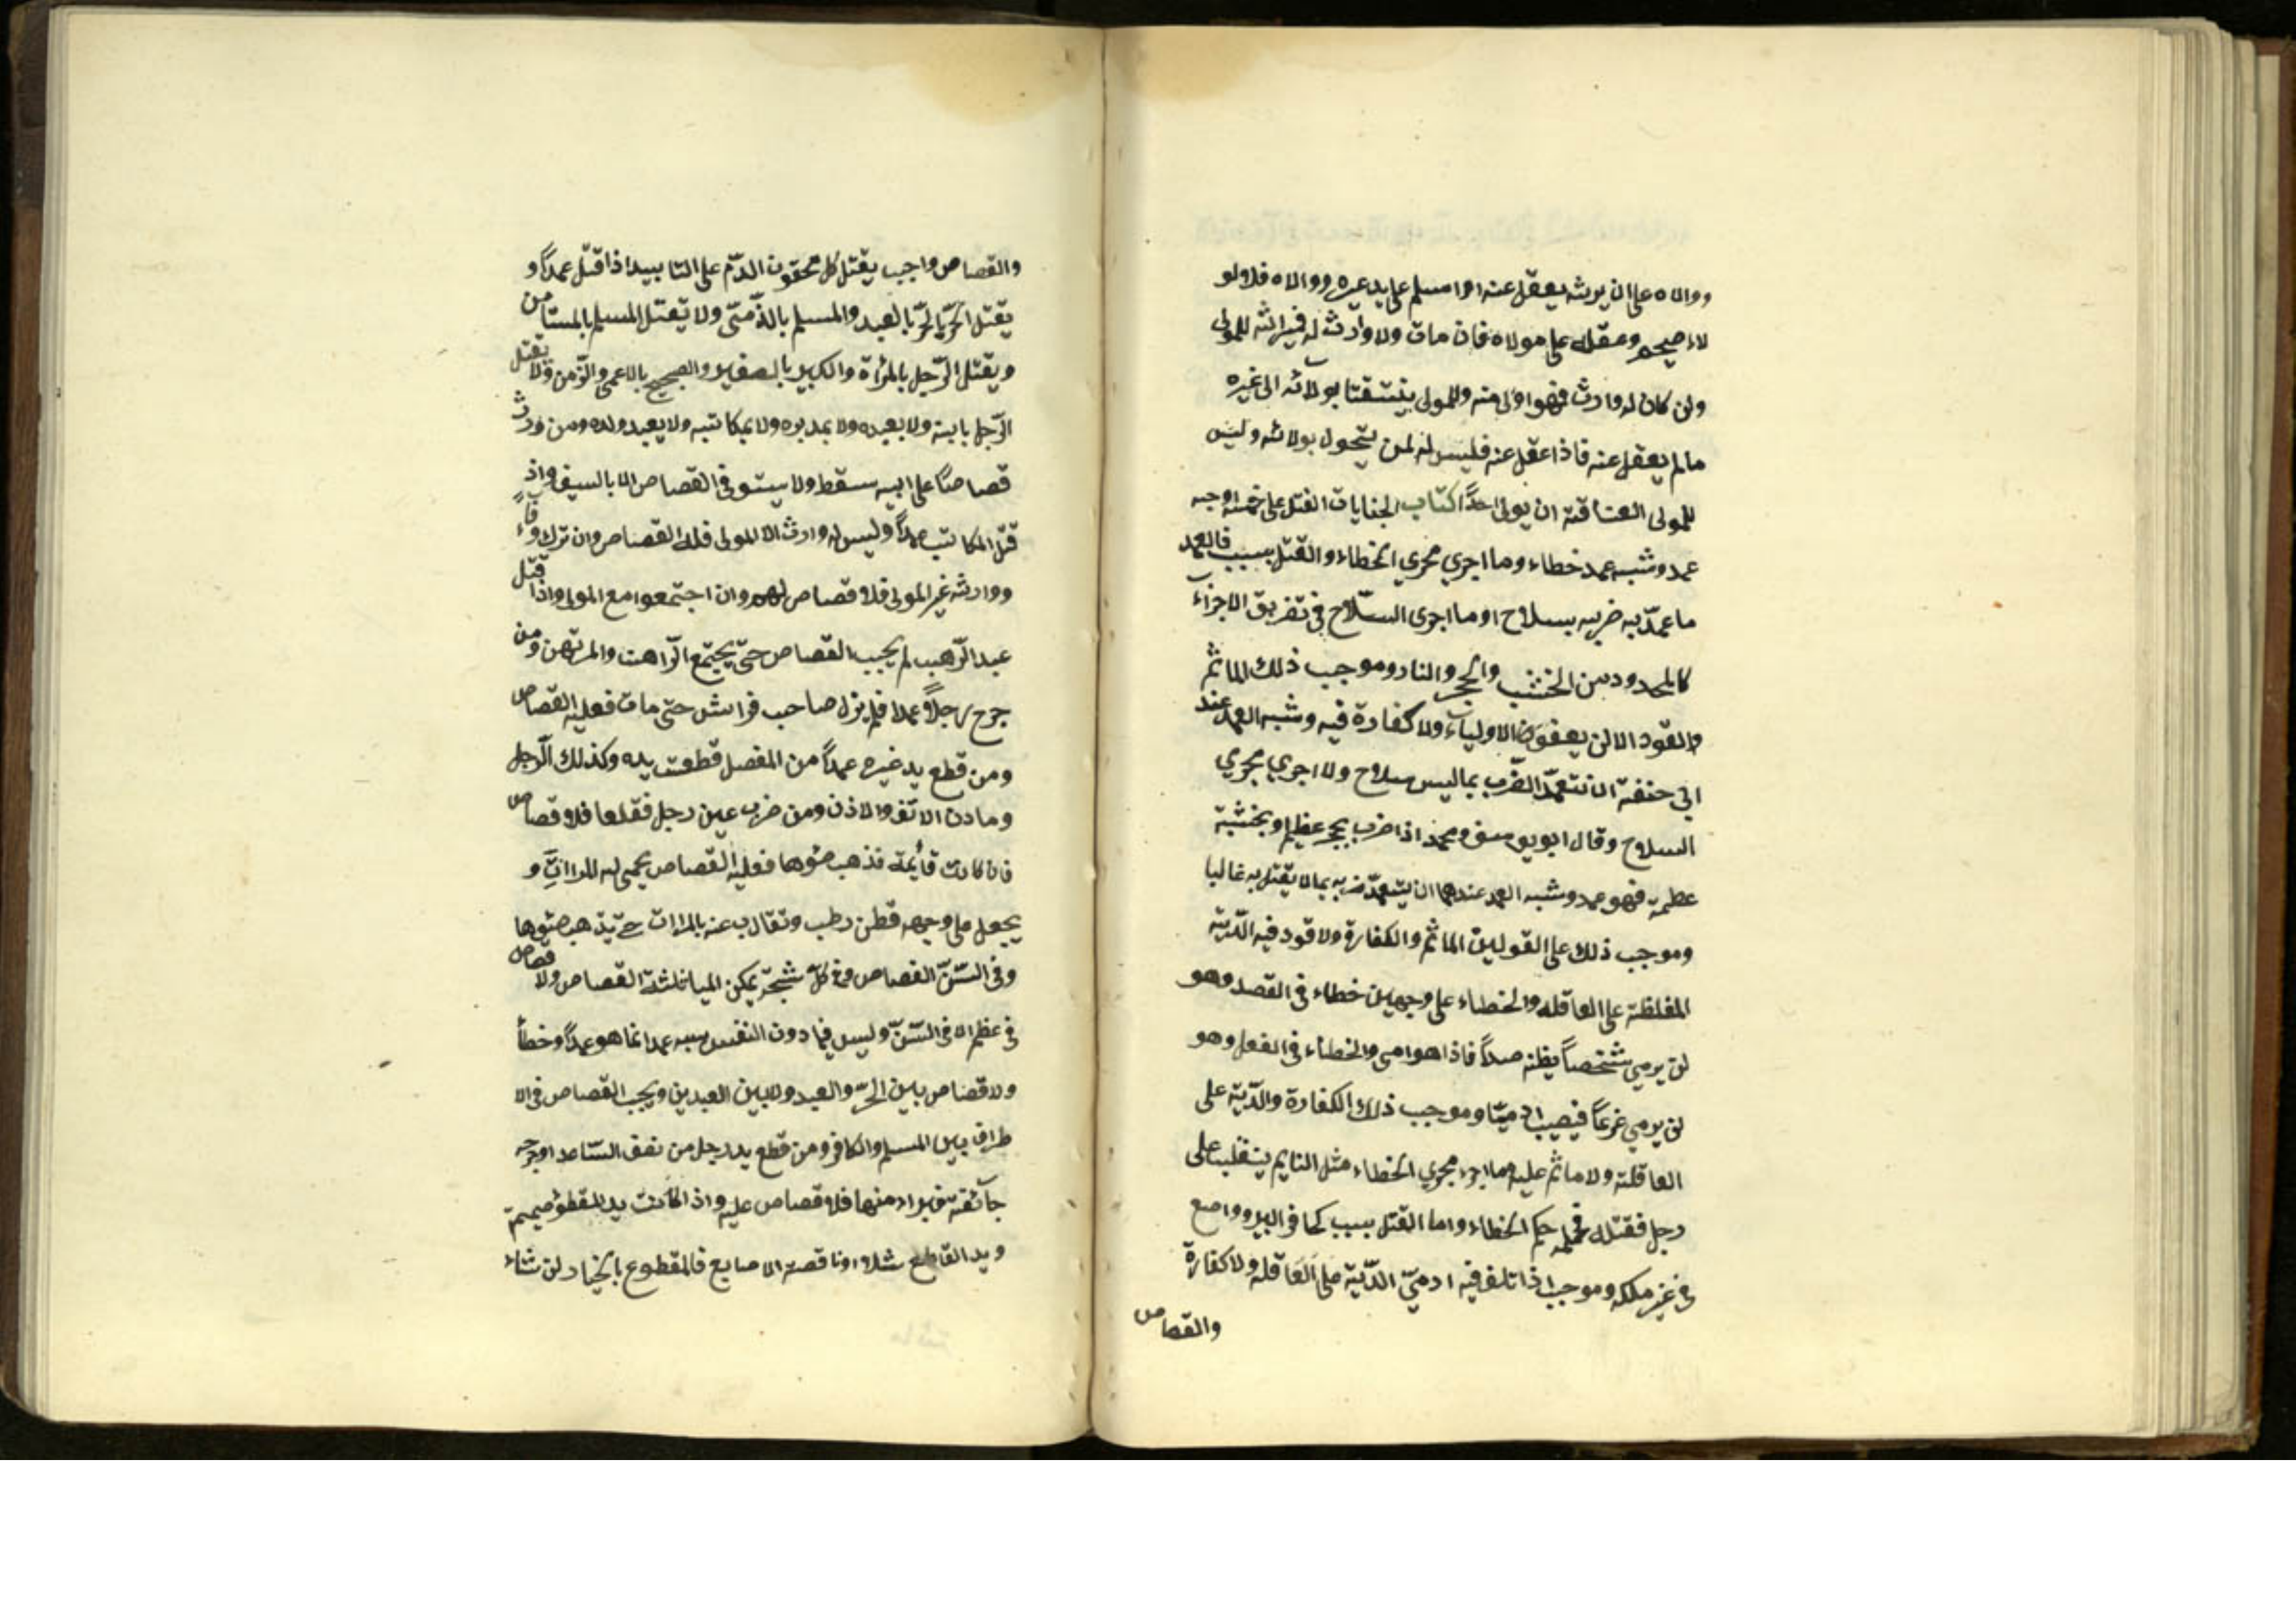 ووالاه على ان يرثه يعقل عنه او اسلم على يد غيره ووالاه فلاولو
لاء صحيح وعقله على مولاه فان مات ولا وارث له فميراثه للمولى
وان كان له وارث فهو اولى منه وللمولى ينتقل بولائه الى غيره
مالم يعقل عنه فاذا عقل عنه فليس له لمن يتحول بولائه وليس
للمولى العتاقة ان يوالى احدًا كتاب الجنايات القتل على خمسة اوجه
عمد وشبه عمد خطاء وما اجري مجري الخطاء والقتل بسبب فالعمد
ما عمد به ضربه بسلاح او ما اجرى السّلاح في تفريق الاجزاء
كالمحدود من الخشب والحجر والنار وموجب ذلك الماثم
والقود الا ان يعفون الاولياء ولا كفارة فيه وشبه العمد عند
ابي حنفة ان تتعمّد الضّرب بما ليس سلاح ولا اجري مجري
السلاح وقال ابو يوسف ومحمد اذا ضرب بحجر عظيم وبخشبة
عظمة فهو عمد وشبه العمد عندهما ان يتعمّد ضربه بما لا يقتل به غالبا
وموجب ذلك على القولين الماثم والكفارة ولا قود فيه الدّية
المغلظة على العاقله والخطاء على وجهين خطاء في القصد وهو
ان يرمي شخصاً يظنه صيداً فاذا هو ادمي والخطاء في الفعل وهو
ان يرمي غرضاً فيصيب ادميّا وموجب ذلك الكفارة والدّية على
العاقلة ولا ماثم عليه وما اجرى مجري الخطاء مثل النايم ينقلب على
رجل فقتله فحكمه حكم الخطاء واما القتل بسبب كحافر البير وواضع
في غير ملكه وموجب اذا تلف فيه ادميّ الدّية على العاقله ولا كفارة
والقصاص
والقصاص واجب يقتل كل محقون الدّم على التابيد اذا قتل عمداً و
يقتل الحرّ بالحرّ بالعبد والمسلم بالذّميّ ولا يقتل المسلم بالمستامن
ويقتل الرّجل بالمرأة والكبير بالصغير والصحيح بالاعمى والزّمن ولا يقتل
الرّجل بابنه ولا بعبده ولا بمدبره ولا بمكاتبه ولا يعبد ولده ومن ورث
قصاصاً على ابيه سقط ولا يستوفى القصاص الا بالسيف واذ
قتل المكاتب عمداً وليس له وارث الا المولى فله القصاص وان ترك وفاءً
ووارثه غير المولى فلا قصاص لهم وان اجتمعوا مع المولى واذا قتل
عبد الرّهب لم يجب القصاص حتّى يجتمع الرّاهن والمرتهن ومن
جرح رجلاً عمدا فلم يزل صاحب فراش حتّى مات فعليه القصاص
ومن قطع يد غيره عمداً من المفصل قطعت يده وكذلك الرّجل
ومادن الانف والاذن ومن ضرب عين رجل فقلعها فلا قصاص
فان كانت قائمة فذهب ضوها فعليه القصاص يحمى له المرات و
يجعل على وجهه قطن رطب وتقارب عنه بالمرات حتى يذهب ضوها
وفى السّنّ القصاص وفي كلّ شجّة يمكن المماثلة القصاص ولا قصاص
في عظم الا في السّنّ وليس فيما دون النفس شبه عمد انما هو عمداً وخطأ
ولا قصاص بين الحرّ والعبد ولا بين العبدين ويجب القصاص في الا
طراف بين المسلم والكافر ومن قطع يد رجل من نصف السّاعد او جرحه
جآئفة فبراء منها فلا قصاص عليه واذا كانت يد المقطوع صحيحة
ويد القاطع شلاء او ناقصة الاصابع فالمقطوع بالخيار ان شاء